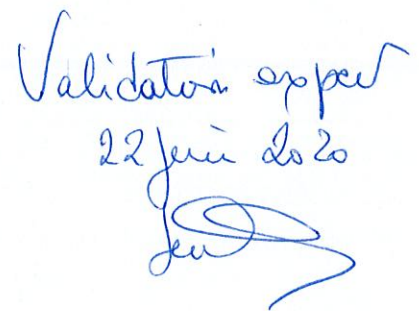 Validation expert
22 juin 2020